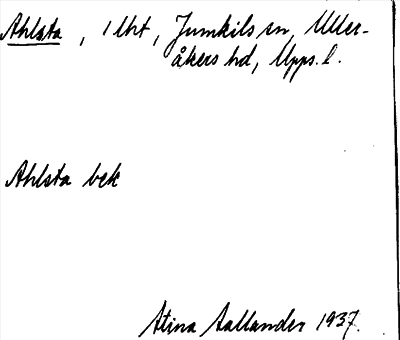 Ahlsta, 1 lht, Jumkils sn, Uller-
åkers hd, Upps. l.
Ahlsta bck
Stina Sallander 1937.